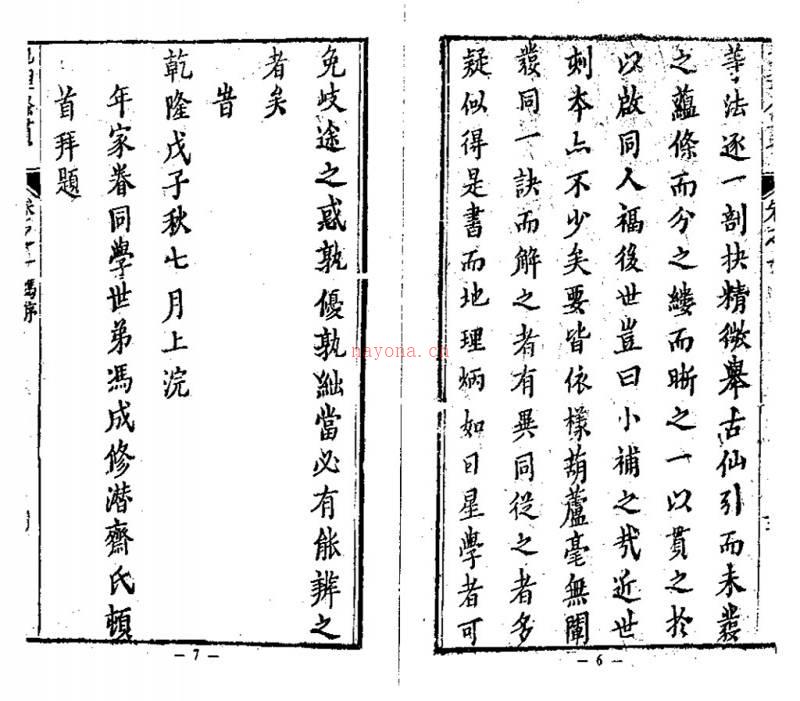 等法逐一剖抉精微舉古仙引而未發
之蘊條而分之縷而晰之一以貫之於
以啟同人福後世豈曰小補之哉近世
刻本亦不少矣要皆依樣葫蘆毫無闡
發同一訣而解之者有異同從之者多
疑似得是書而地理炳如日星學者可
— 6 —
免岐途之惑孰優孰絀當必有能辨之
者矣
旹
乾隆戊子秋七月上浣
年家眷同學世弟馮成修潜齋氏頓
首拜題
— 7 —
nayona.cn